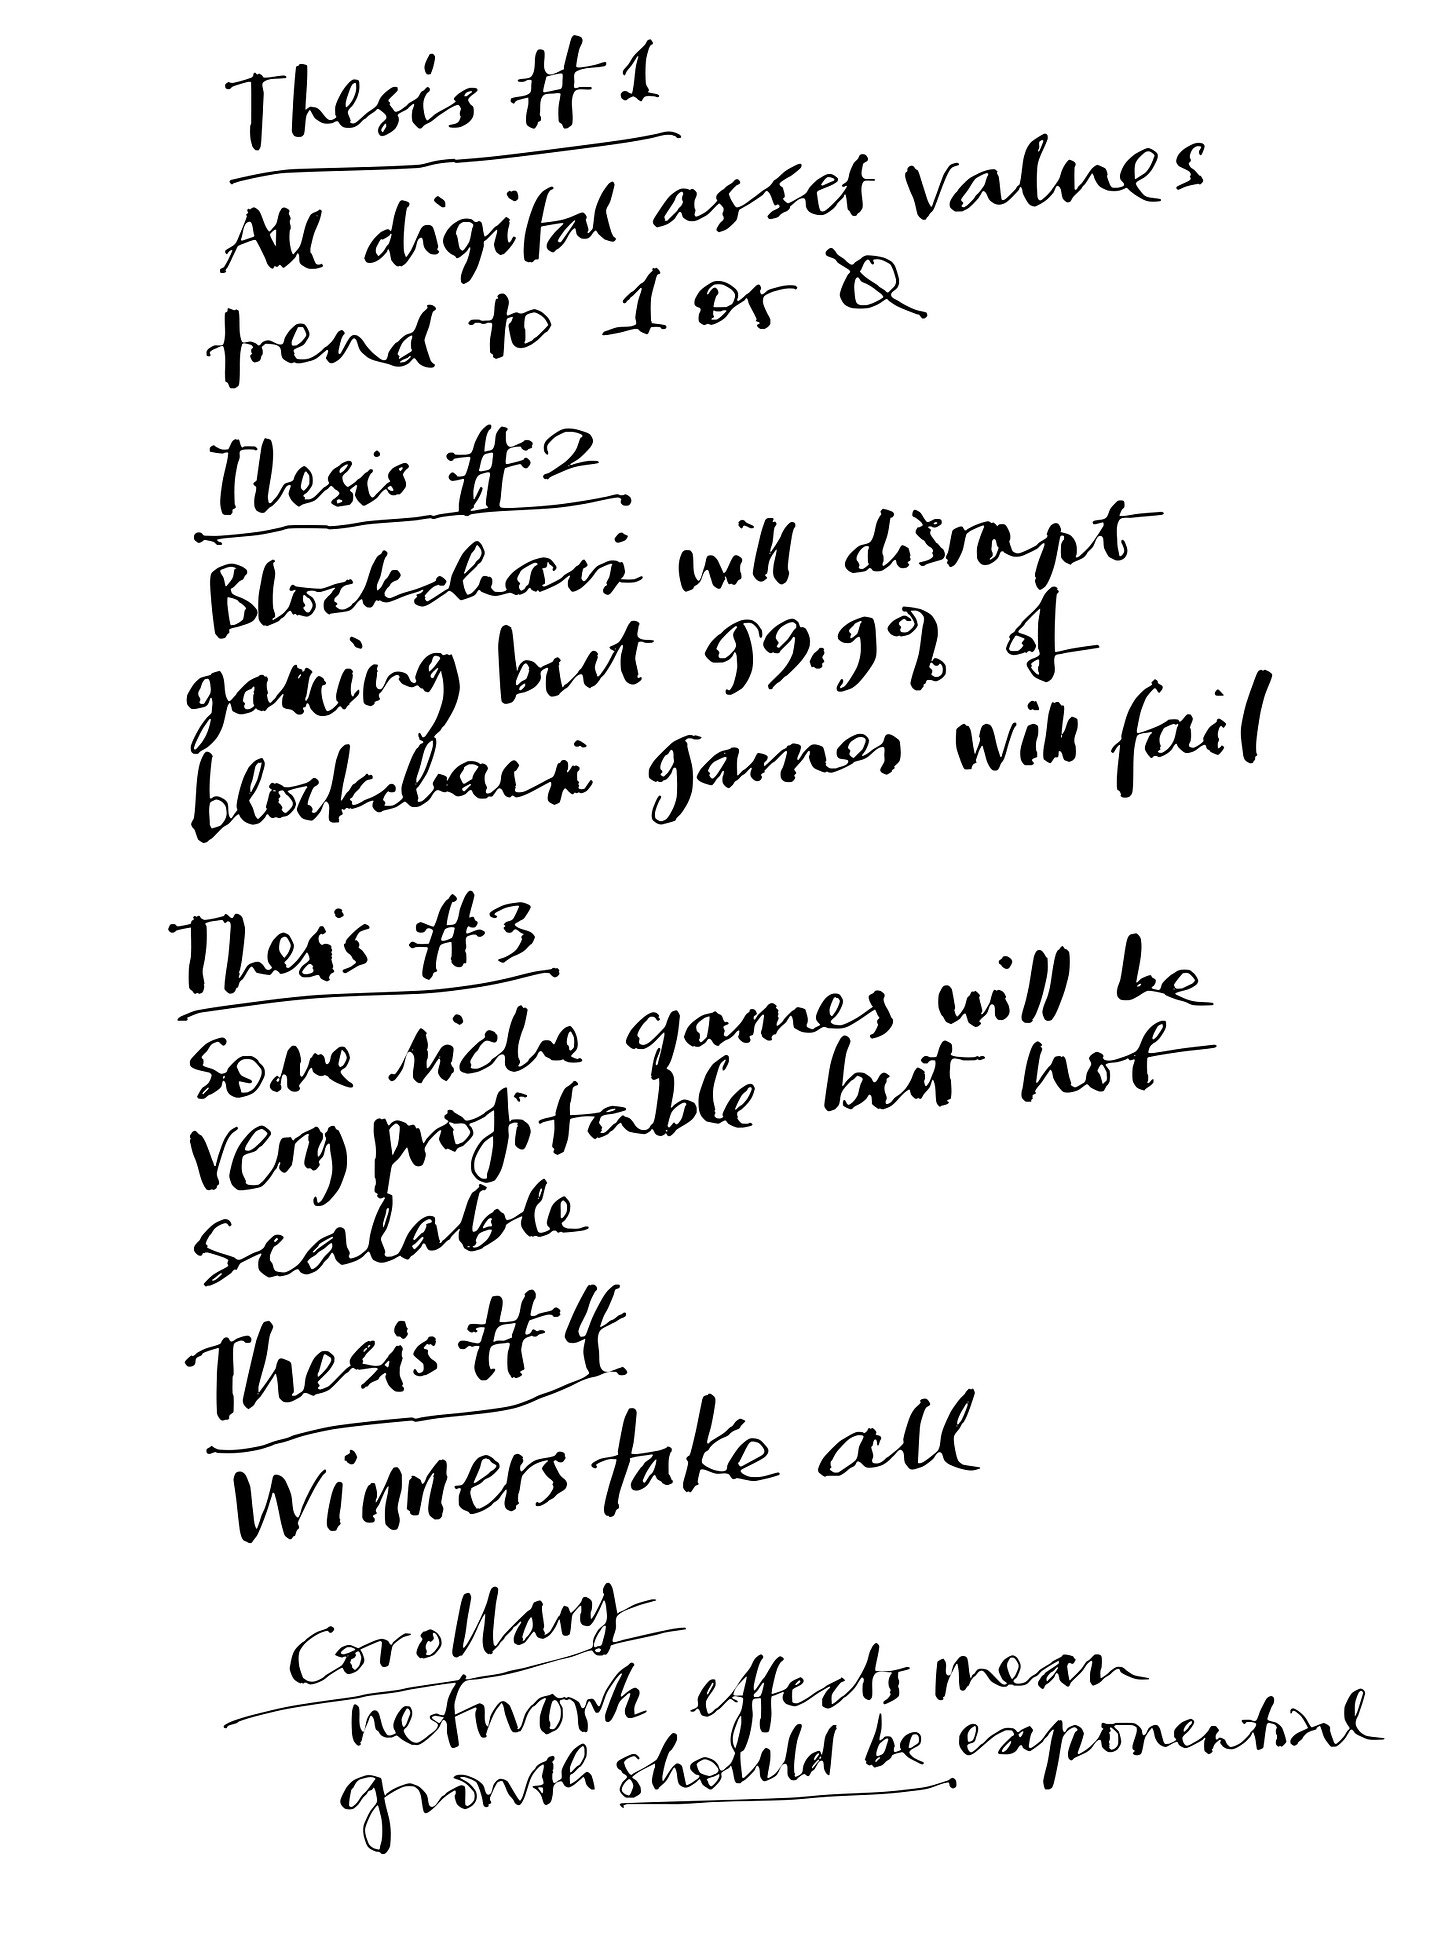 Thesis #1
All digital asset values
trend to 1 or 0
Thesis #2
Blockchain will disrupt
gaming but 99.9% of
blockchain games will fail
Thesis #3
Some niche games will be
very profitable but not
scalable
Thesis #4
Winners take all
Corollary
network effects mean
growth should be exponential